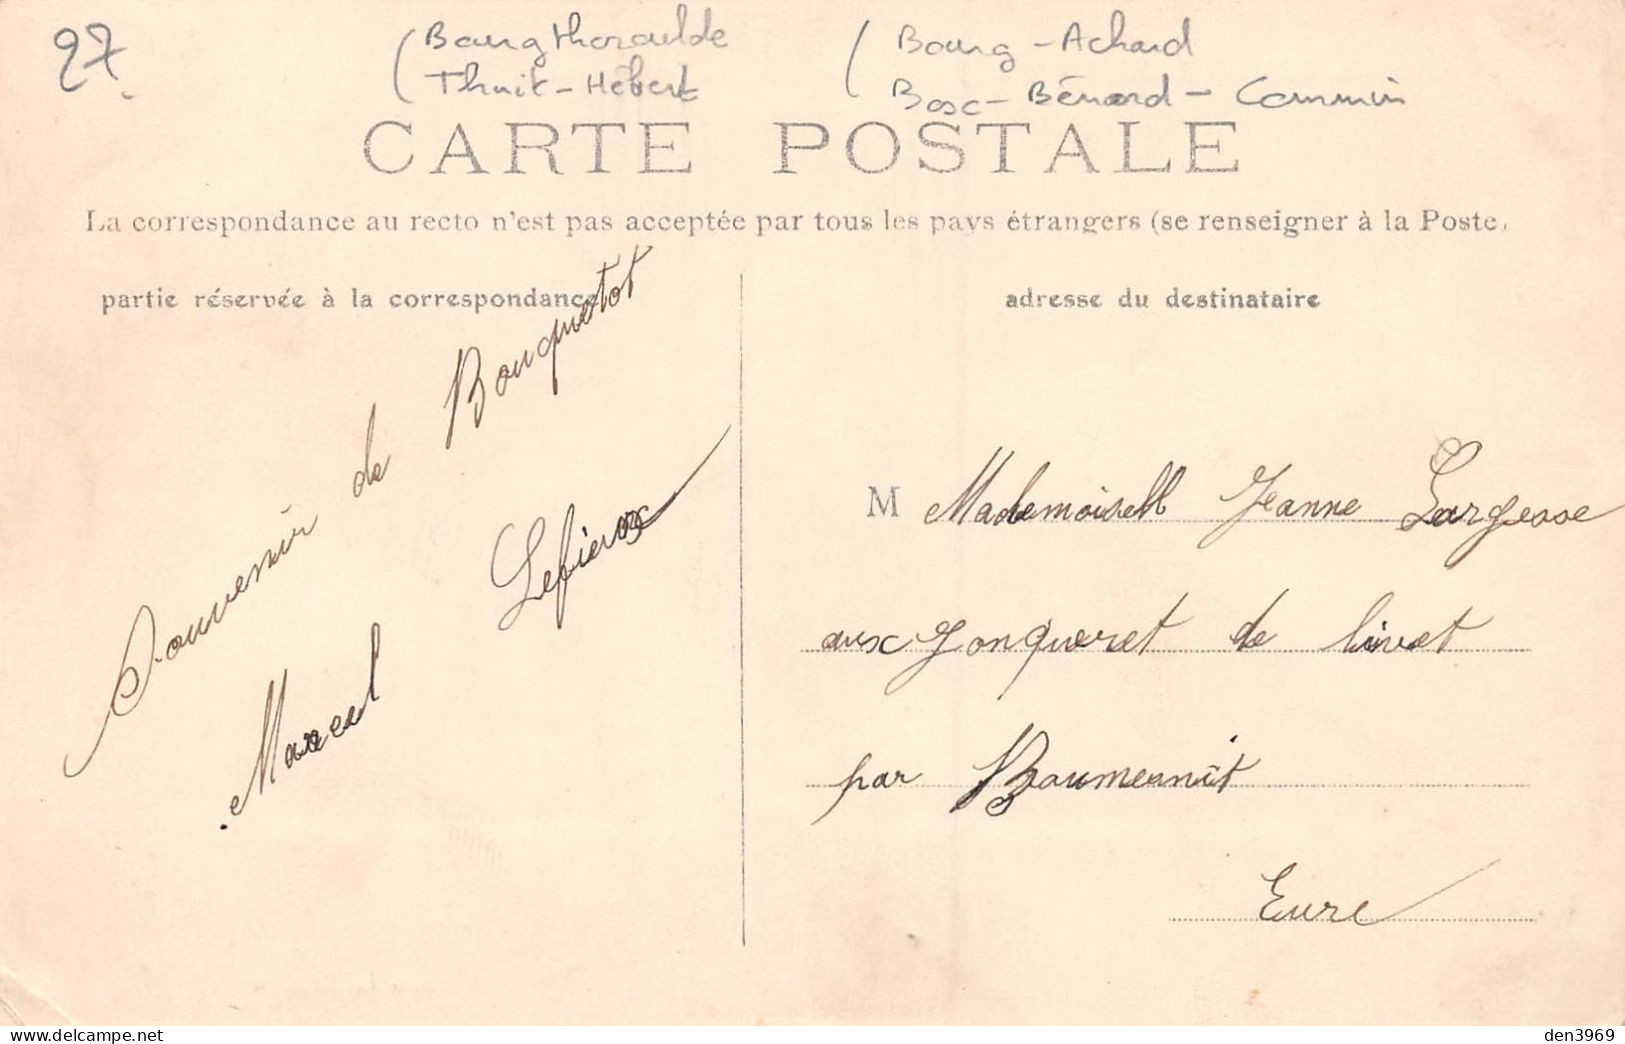 27
Bourgtheroulde
Thuit-Hébert
Bourg-Achard
Bosc-Bénard-Commin
CARTE POSTALE
La correspondance au recto n'est pas acceptée par tous les pays étrangers (se renseigner à la Poste,
partie réservée à la correspondance
adresse du destinataire
Souvenir de Bouquetot
Marcel
M Mademoisell Jeanne Largesse
aux Jonqueret de livet
par Beaumesnil
Eure
den3969